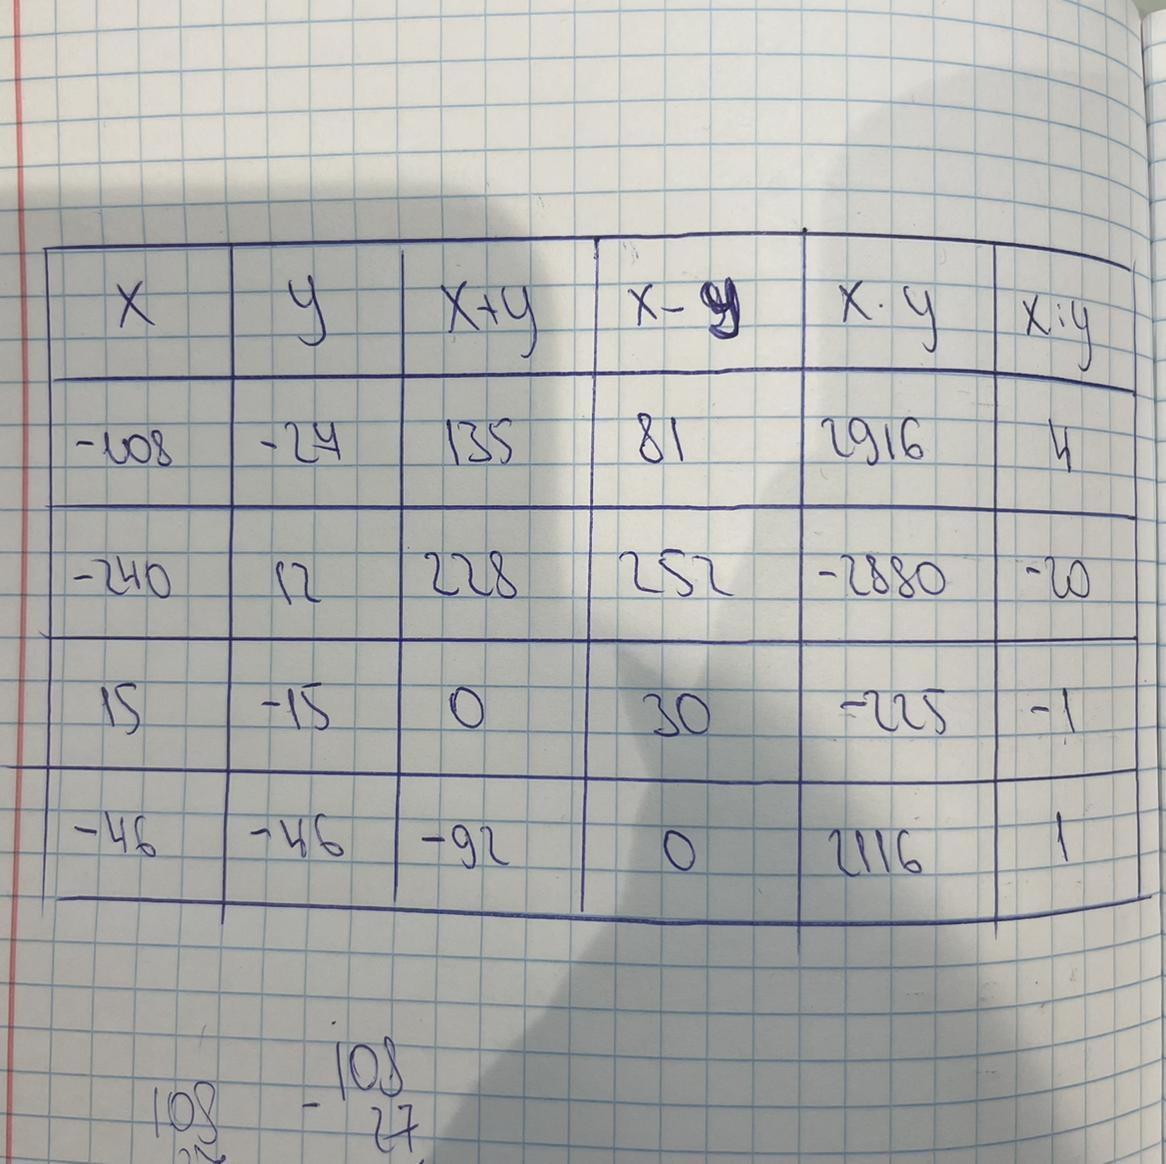 x y x+y x-y x·y x:y
-108 -27 135 81 2916 4
-240 12 228 252 -2880 -20
15 -15 0 30 -225 -1
-46 -46 -92 0 2116 1
108 - 108
27